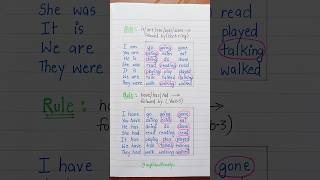 She was
It is
We are
They were
Rule :
I have
followed by (verb+ing)
I am go going gone
You are eating eaten eat
He is doing do done
She was read reading read
It is playing play played
We are talk talked talking
They were walk walking walked
Rule : have/has/had →
followed by (Verb-3)
I have go going gone
You have eating eaten eat
He has doing do done
She had read reading read
It has playing play played
We have talk talking talked
They had walk walking walked
read
played
talking
walked
b-3)
gone